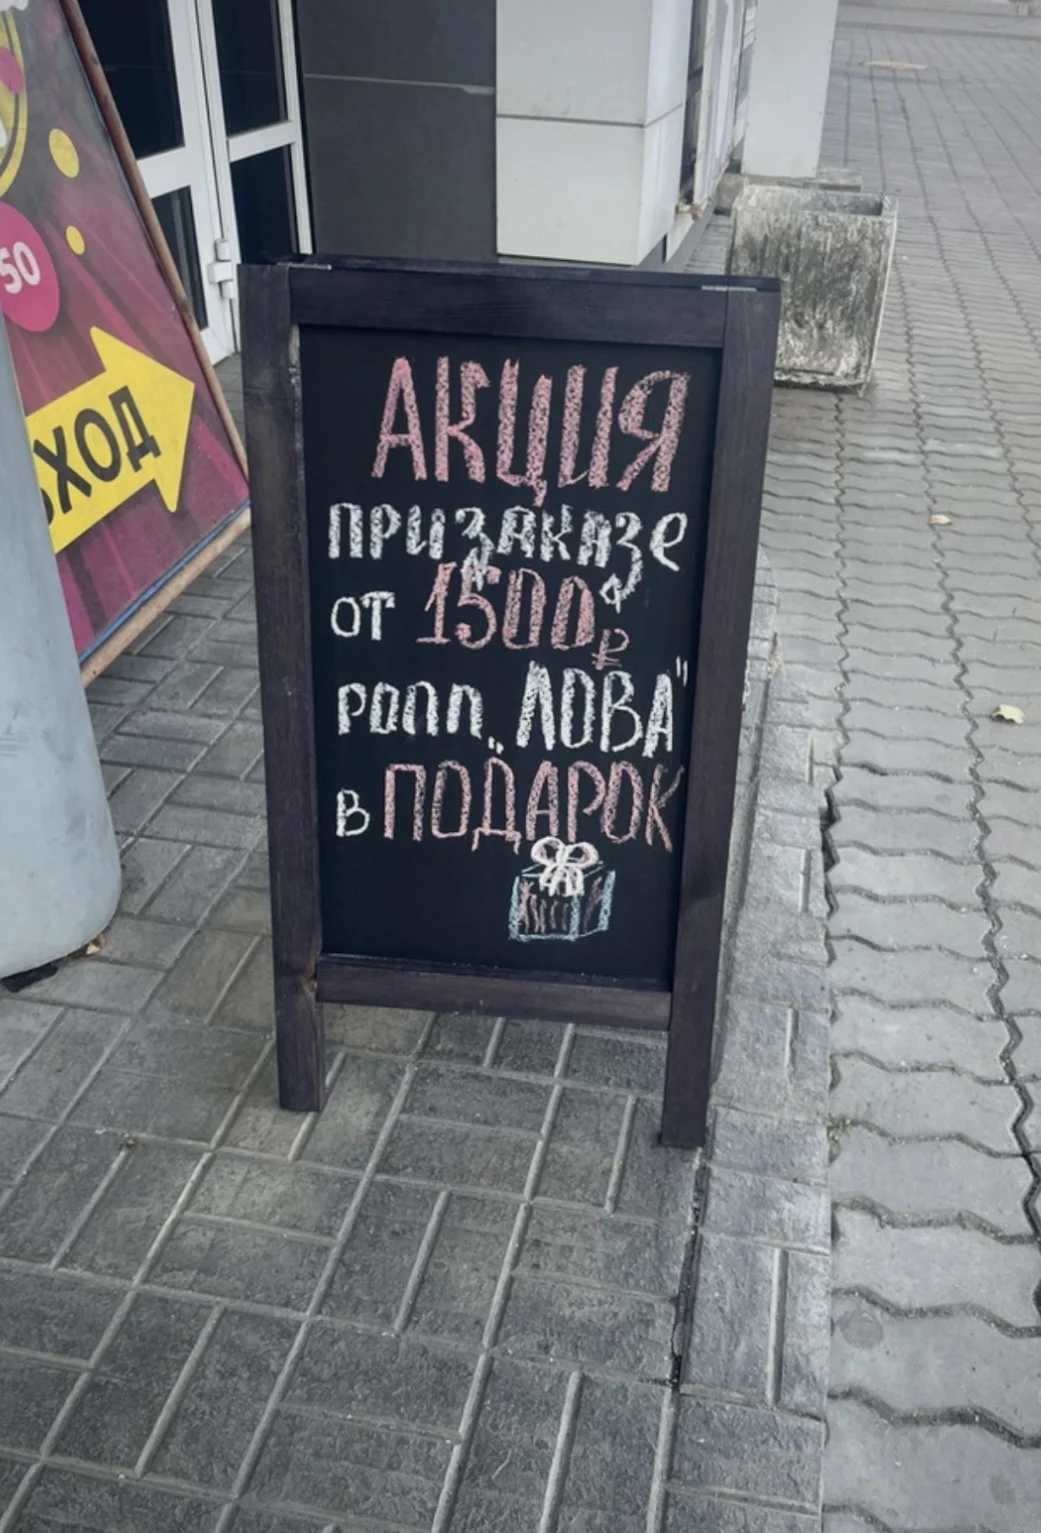 50
ВХОД
АКЦИЯ
при заказе
от 1500₽
ролл „ЛОВА"
в ПОДАРОК